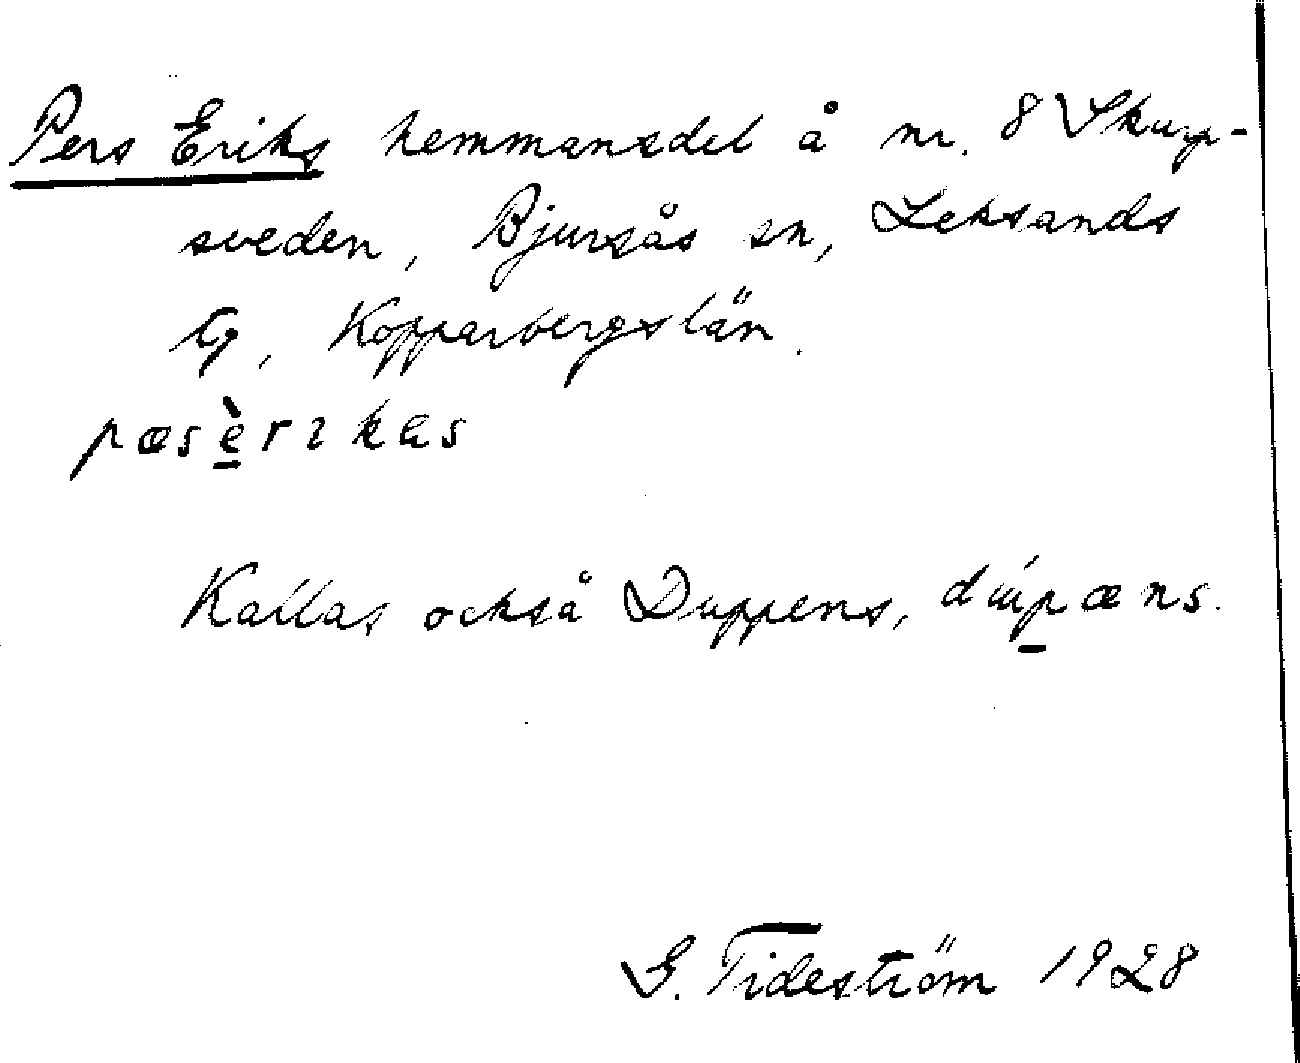 Pers Eriks hemmansdel å nr. 8 Skurp-
sveden, Bjursås sn, Leksands
tg, Kopparbergs län.
pæsèrikas
Kallas också Duppens, dúpæns.
G. Tideström 1928